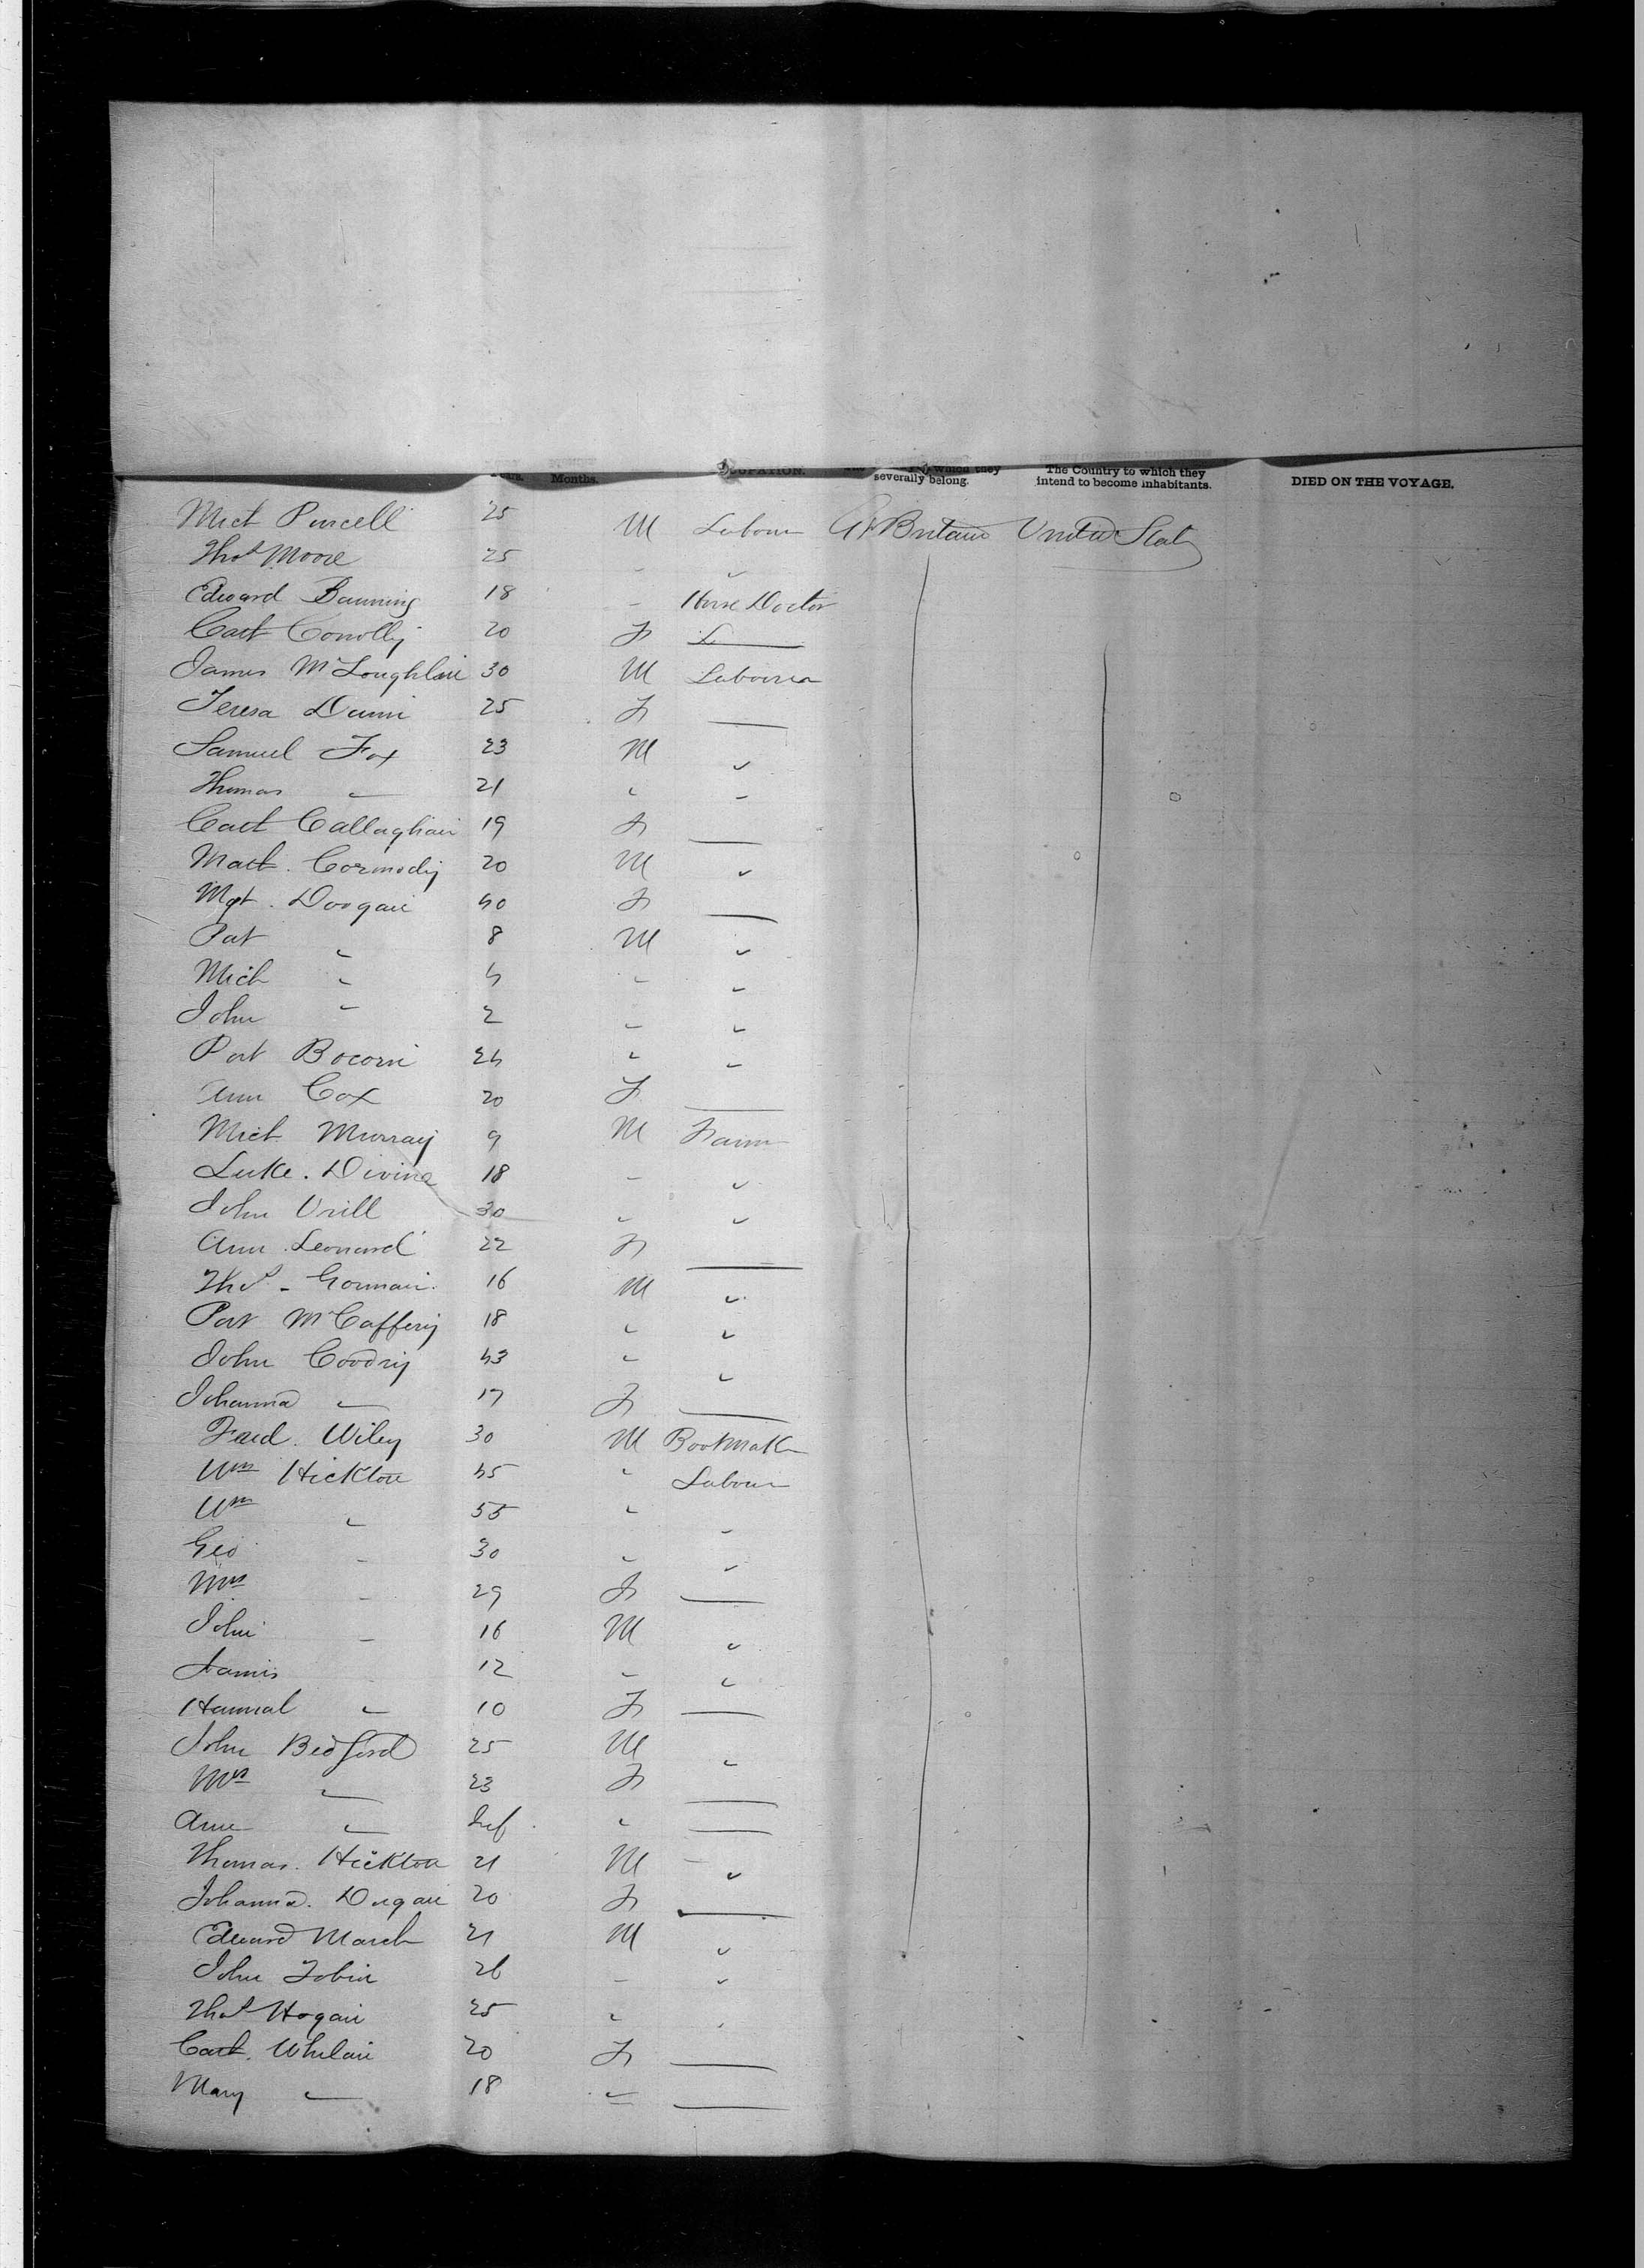 Years. Months. OCCUPATION. which they severally belong. The Country to which they intend to become inhabitants. DIED ON THE VOYAGE.
Mich Purcell 25 M Labour Gt Britain United States
Thos Moore 25 - "
Edward Banning 18 - Horse Doctor
Cath Conolly 20 F
James McLoughlin 30 M Labourer
Teresa Dunn 25 F —
Samuel Fox 23 M "
Thomas " 21 " "
Cath Callaghan 19 F —
Matt. Cormody 20 M "
Mgt. Doogan 40 F —
Pat " 8 M "
Mich " 4 " "
John " 2 " "
Pat 24 " "
Ann Cox 20 F —
Mich Murray 9 M Farmr
Luke. Divine 18 - "
John 30 " "
Ann Leonard 22 F —
Thos - Gorman. 16 M "
Pat McCaffery 18 " "
John 43 " "
Johanna " 17 F —
Wiley 30 M Bootmak
Wm Hickton 45 " Labour
Wm " 55 " "
Geo " 30 " "
Mrs " 29 F —
John " 16 M "
James 12 " "
Hannah " 10 F —
John Bedford 25 M "
Mrs " 23 F —
Ann " Inf. " —
Thomas. Hickton 21 M "
Johanna. Dugan 20 F —
Edward March 21 M "
John Tobin 26 - "
Thos Hogan 25 " "
Cath. Whelan 20 F —
Mary " 18 " —